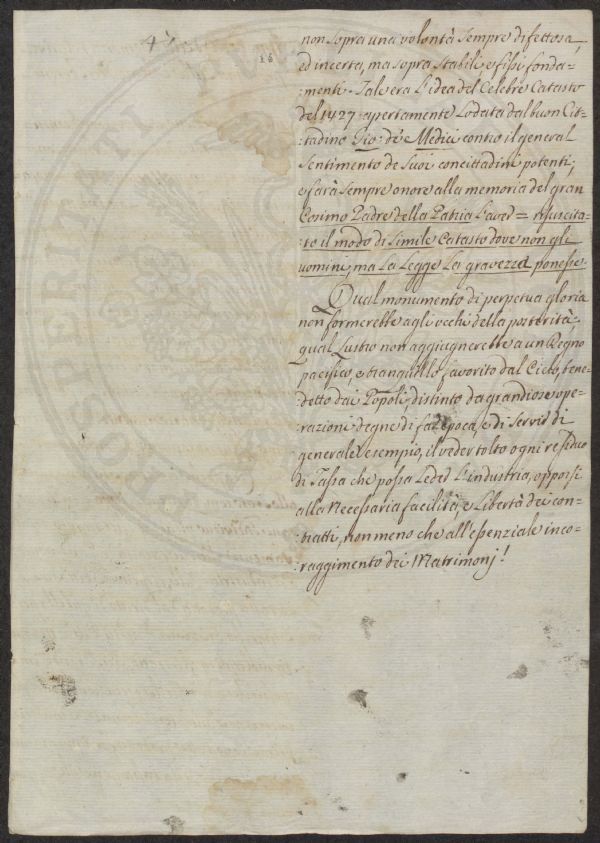 47.
16
non sopra una volontà sempre difettosa,
ed incerta, ma sopra stabili e fissi fonda-
:menti. Tale era l'idea del Celebre Catasto
del 1427 apertamente Lodata dal buon Cit-
:tadino Gio: de Medici contro il general
Sentimento de Suoi concittadini potenti;
e farà sempre onore alla memoria del gran
Cosimo Padre della Patria l'aver= risuscita-
to il modo di Simile Catasto dove non gli
uomini, ma La Legge La gravezza ponesse.
Qual monumento di perpetua gloria
non formerebbe agli occhi della posterità.
qual Lustro non aggiugnerebbe a un Regno
pacifico, e tranquillo favorito dal Cielo, bene-
detto dai Popoli, distinto da grandiose ope-
razioni degne di far epoca, e di Servir di
generale esempio, il veder tolto ogni residuo
di Tassa che possa Leder l'industria, opporsi
alla Necessaria facilità, e Libertà dei con-
:tratti, non meno che all'essenziale inco-
:raggimento dei Matrimonj!
PROSPERITATI